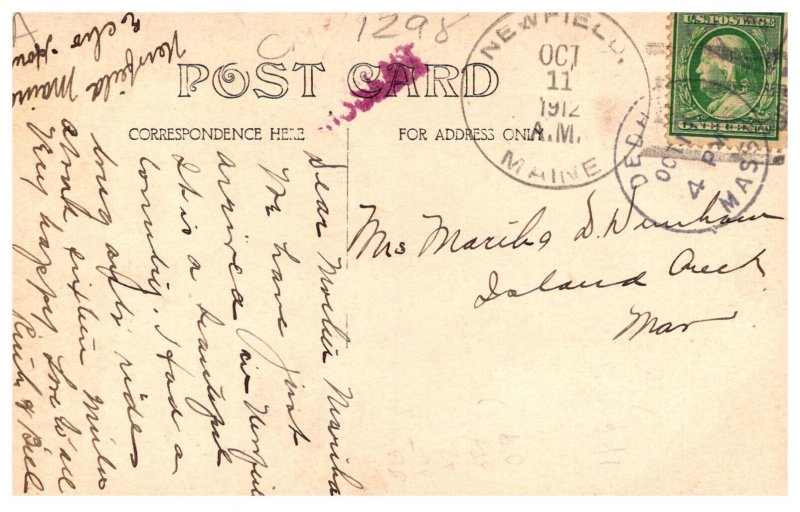 1298
POST CARD
CORRESPONDENCE HERE
FOR ADDRESS ONLY
NEWFIELD,
OCT
11
1912
A.M.
MAINE
U.S. POSTAGE
ONE CENT
DEDH
OCT
4 P
MASS
Mrs Martha D. Denham
Island Creek
Mass
Newfield Maine
Dear Mother Martha
We have just
arrived in Newfield
It is a beautiful
country. I had a
long auto ride
about sixteen miles
Very happy Love to all
Ruth & Bill